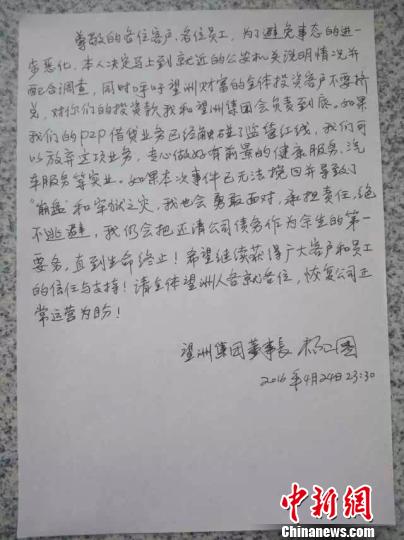 尊敬的各位客户、各位员工，为了避免事态的进一
步恶化，本人决定马上到就近的公安机关说明情况并
配合调查，同时呼吁望洲财富的全体投资客户不要挤
兑，对你们的投资款，我和望洲集团会负责到底。如果
我们的P2P借贷业务已经触碰了监管红线，我们可
以放弃这项业务，专心做好有前景的健康服务、汽
车服务等实业。如果本次事件已无法挽回并导致了
“崩盘”和牢狱之灾，我也会勇敢面对，承担责任，绝
不逃避，我仍会把还清公司债务作为余生的第一
要务，直到生命终止！希望继续获得广大客户和员工
的信任与支持！请全体望洲人各就各位，恢复公司正
常运营为盼！
望洲集团董事長 杨卫国
2016年4月24日23:30
中新网
Chinanews.com